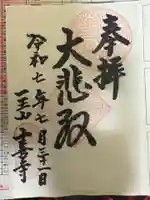 奉拝
大悲殿
令和七年七月二十一日
一王山 十善寺